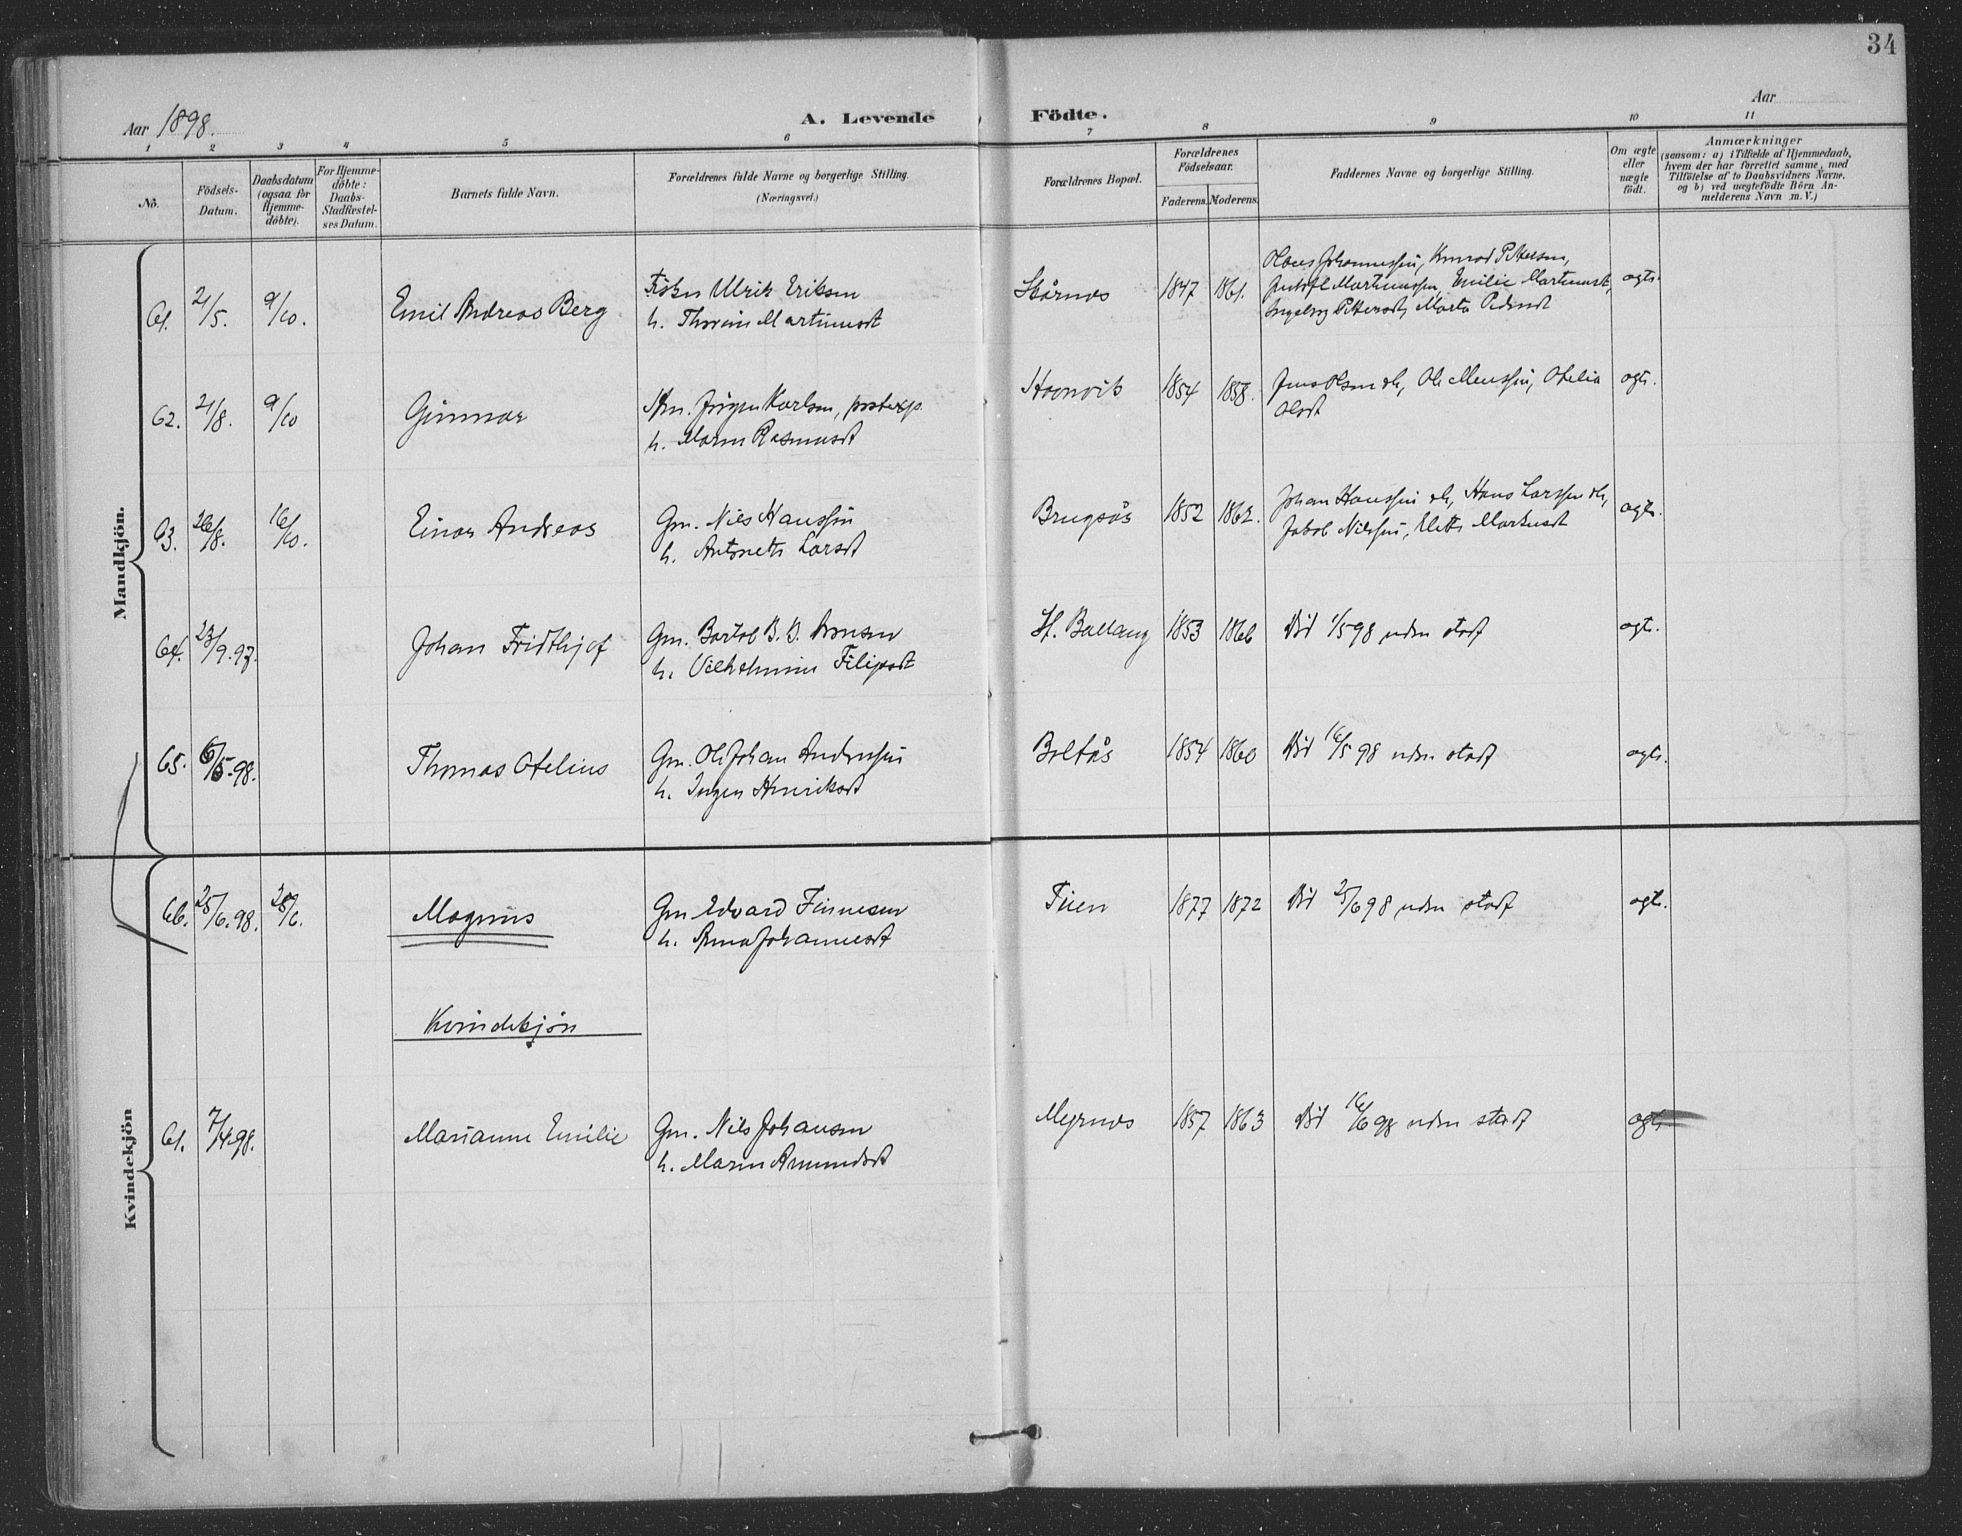 34
Aar 1898.
A. Levende Födte.
Aar
1 2 3 4 5 6 7 8 9 10 11
Nö.
Födsels-Datum.
Daabsdatum (ogsaa for Hjemme-döbte).
For Hjemme-döbte: Daabs-Stadfæstel-ses Datum.
Barnets fulde Navn.
Forældrenes fulde Navne og borgerlige Stilling.
(Næringsvei.)
Forældrenes Bopæl.
Forældrenes Födselsaar.
Faderens. Moderens.
Faddernes Navne og borgerlige Stilling.
Om ægte eller uægte födt.
Anmærkninger
(saasom: a) i Tilfælde af Hjemmedaab,
hvem der har forrettet samme, med
Tilföielse af to Daabsvidners Navne,
og b) ved uægtefödte Börn An-
melderens Navn m. V.)
Mandkjön.
61. 21/5. 9/10. Emil Andreas Berg
Fisker Ulrik Eriksen
h. Martinusdt
Skårnes 1847 1861.
Hans Johannessen, Konrad Pettersen,
Martinussen, Emilie Martinusdt,
Ingeborg Pettersdt, Marta Pedersdt
ægte.
62. 21/8. 9/10 Gunnar
Jörgen Karlsen, postexp.
h. Maren Rasmusdt
1854 1858.
Jens Olsen Ole Otelia
Olsdt
ægte.
63. 26/8. 16/10. Einar Andreas
Gm. Nils Hanssen
h. Antonette Larsdt
Brugsås 1852 1862.
Johan Hanssen Hans Larssen
Jakob Nilssen, Mette Markusdt
ægte.
64. 23/9.97. Johan Fridthjof
Gm. Bartol B. Arnesen
h. Vilhelmine Filipsdt
Ballang 1853 1866
Död 1/5 98 uden staaf
ægte.
65. 6/5.98. Thomas Otelius
Gm. Ole Johan Anderssen
h. Inger Henriksdt
Boltås 1854 1860
Död 16/5 98 uden
ægte.
66. 25/6.98. 28/6. Magnus
Gm Edvard Finnesen
h. Anna Johannesdt
1877 1872
Död 25/6 98 uden
ægte.
Kvindekjön
Kvindekjön
61. 7/4.98. Marianne Emilie
Gm. Nils Johansen
h. Maren Amundsdt
Myrnes 1857 1863
Död 16/6 98 uden
ægte